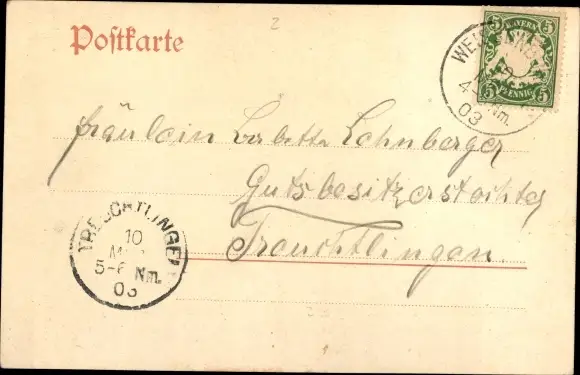 2
Postkarte
BAYERN
5 5
5 PFENNIG 5
WEISSENB
4-5 Nm.
03
Fräulein Babette Lehnberger
Gutsbesitzerstochter
Treuchtlingen
TREUCHTLINGEN
10
5-6 Nm.
03